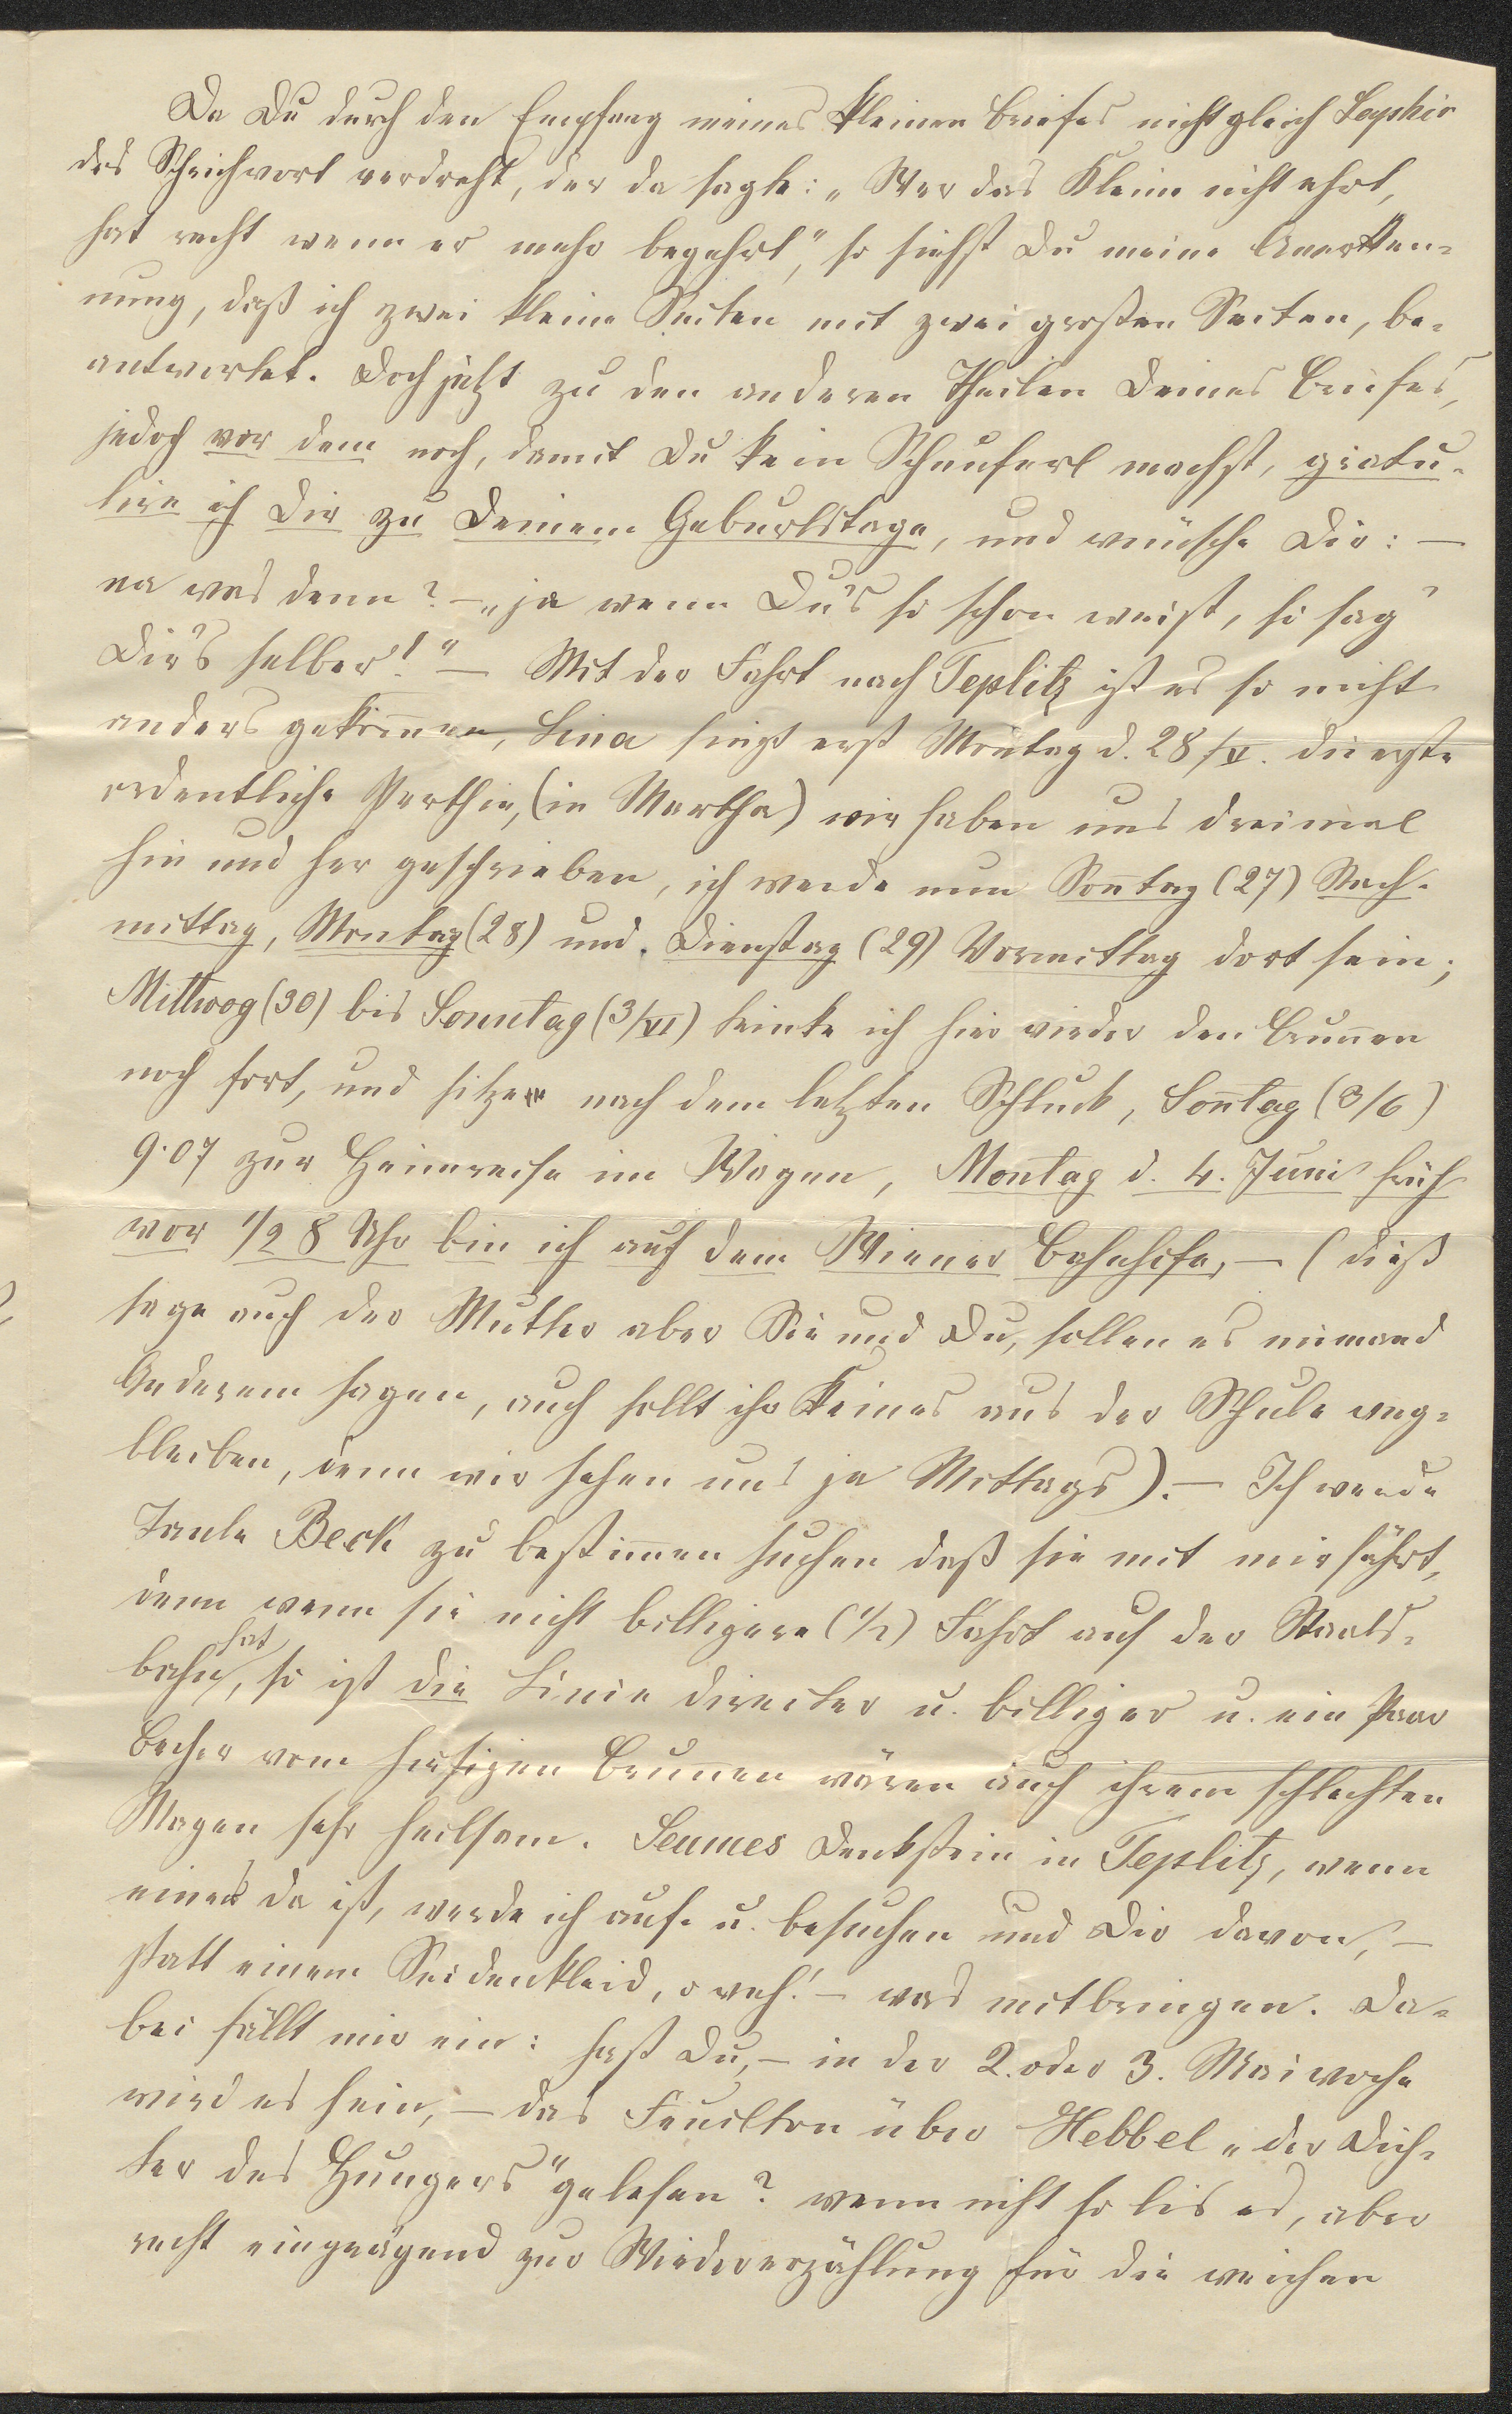 Da Du durch den Empfang meines kleinen Briefes nicht gleich Saphir
das Sprichwort verdrehst, der da sagte: „Wer das Kleine nicht ehrt,
hat recht wenn er mehr begehrt," so siehst Du meine Anerken-
nung, daß ich zwei kleine Seiten mit zwei großen Seiten, be-
antwortet. Doch jetzt zu den anderen Theilen Deines Briefes,
jedoch vor dem noch, damit Du kein Schnuferl machst, gratu-
lire ich Dir zu Deinem Geburtstage, und wünsche Dir: —
na was denn? — „ja wenn Du's so schon weist, so sag'
Dir's selber!" — Mit der Fahrt nach Teplitz ist es so nicht
anders gekom̄en, Lina singt erst Montag d. 28/V. die erste
ordentliche Parthie, (in Martha) wir haben uns dreimal
hin und her geschrieben, ich werde nun Son̄tag (27) Nach-
mittag, Montag (28) und Dienstag (29) Vormittag dort sein;
Mittwog (30) bis Sonntag (3/VI) trinke ich hier wieder den Brun̄en
noch fort, und sitze nach dem letzten Schluck, Son̄tag (3/6)
9·07 zur Heimreise im Wagen, Montag d. 4. Juni früh
vor 1/2 8 Uhr bin ich auf dem Wiener Bahnhofe, — (dieß
sage auch der Mutter aber Sie und Du, sollen es niemand
Anderem sagen, auch sollt ihr Keines aus der Schule weg-
bleiben, denn wir sehen uns ja Mittags). — Ich werde
Tante Beck zu bestim̄en suchen daß sie mit mir fährt,
denn wenn sie nicht billigere (1/2) Fahrt auf der Staats-
bahn hat, so ist die Linie directer u. billiger u. ein Paar
Becher vom hiesigen Brun̄en wären auch ihrem schlechten
Magen sehr heilsam. Seumes Denkstein in Teplitz, wenn
einer da ist, werde ich auf- u. besuchen und Dir davon, —
statt einem Seidenkleid, o weh! — was mitbringen. Da-
bei fällt mir ein: hast Du, — in der 2. oder 3. Maiwoche
wird es sein, — das Feuilton über Hebbel „der Dich-
ter des Hungers" gelesen? wenn nicht so lis es, aber
recht einprägend zur Wiedererzählung für die weichen